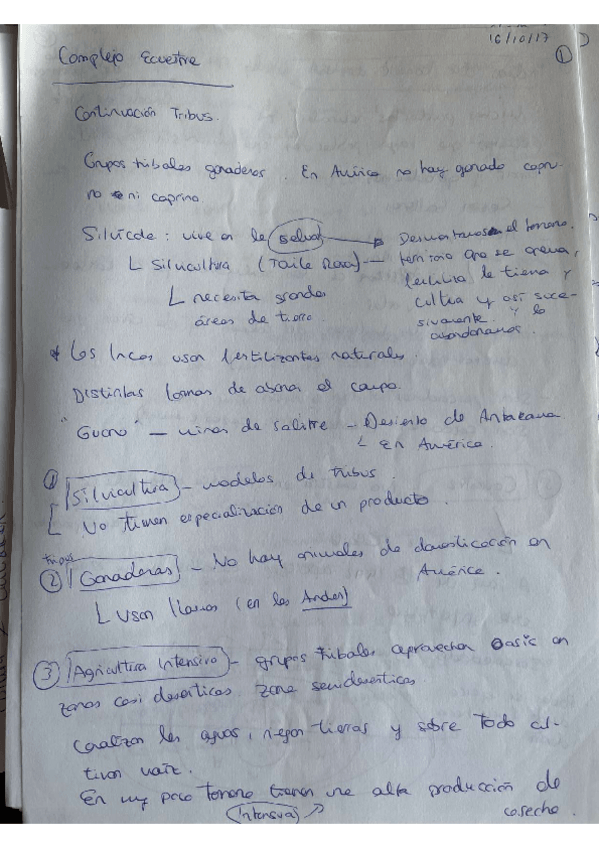 16/10/17
①
Complejo Ecuestre
Continuación Tribus.
Grupos tribales ganaderos. En América no hay ganado capri-
no ni caprino
Silvícola: vive en la selva → Desmontamos el terreno.
└ Silvicultura (Tala Roza) — terreno que se quema,
fertiliza la tierra y
└ necesita grandes cultiva y así suce-
áreas de tierra. sivamente. y lo
abandonamos.
* Los Incas usan fertilizantes naturales.
Distintas formas de abonar el campo.
"Guano" — minas de salitre — Desierto de Atacama
└ En América.
① Silvicultura — modelos de tribus.
No tienen especialización de un producto.
tribus
② Ganaderas — No hay animales de domesticación en
América.
└ Usan llamas (en los Andes)
③ Agricultura Intensiva — grupos tribales aprovechan oasis en
zonas casi desérticas. Zona semidesérticas.
Canalizan las aguas, riegan tierras y sobre todo cul-
tivan maíz.
En muy poco terreno tienen una alta producción de
(Intensiva) cosecha.